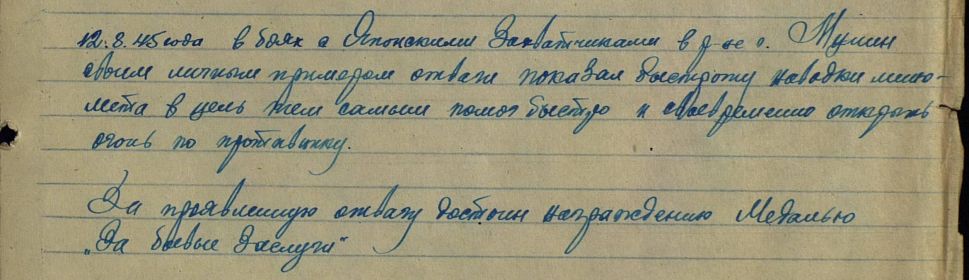 12.8.45 года в боях с Японскими Захватчиками в р-не г. Мулин
своим личным примером отваги показал быстроту наводки мино-
мета в цель тем самым помог быстро и своевременно открыть
огонь по противнику.
За проявленную отвагу достоин награждению Медалью
„За боевые Заслуги"